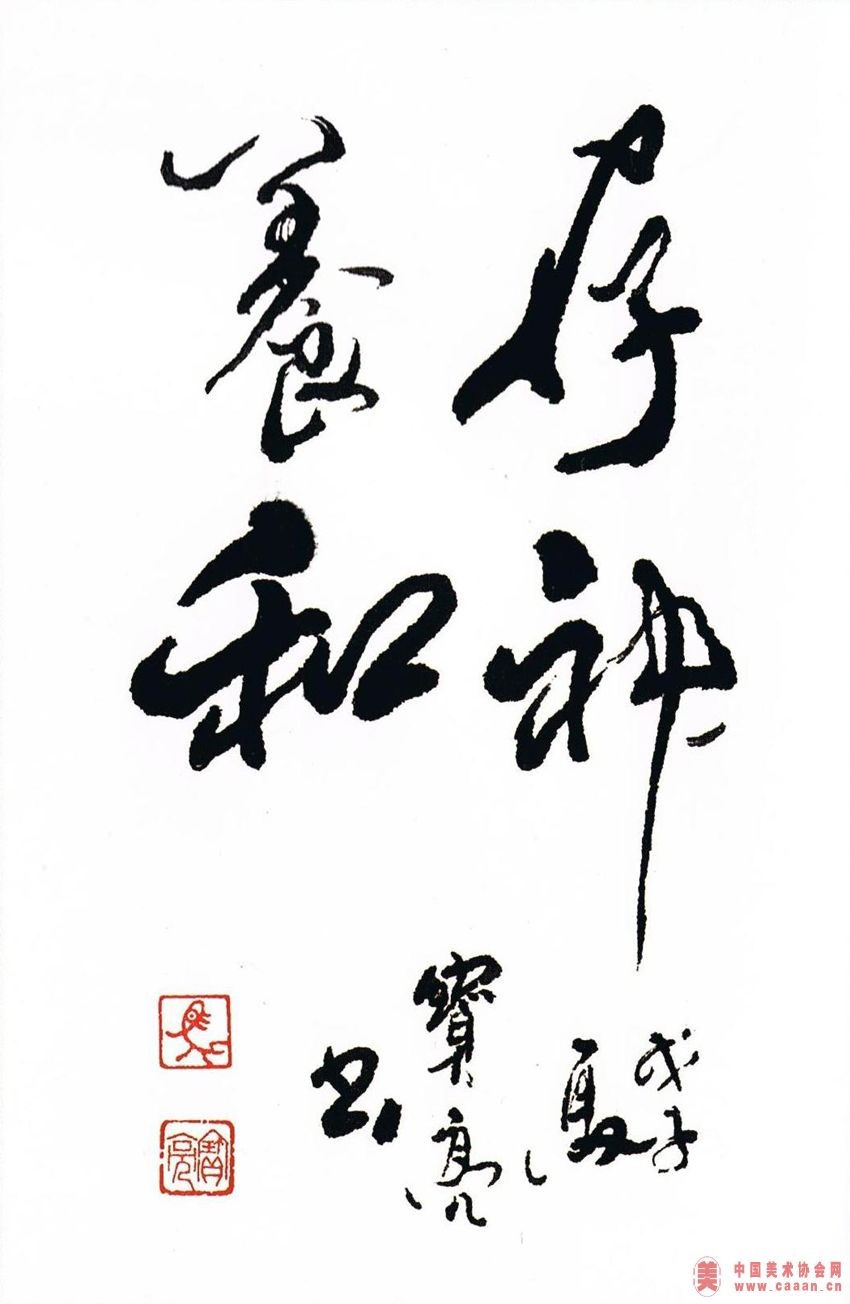 存神
養和
戊子
夏
寶亮
书
美 中国美术协会网
www.caaan.cn